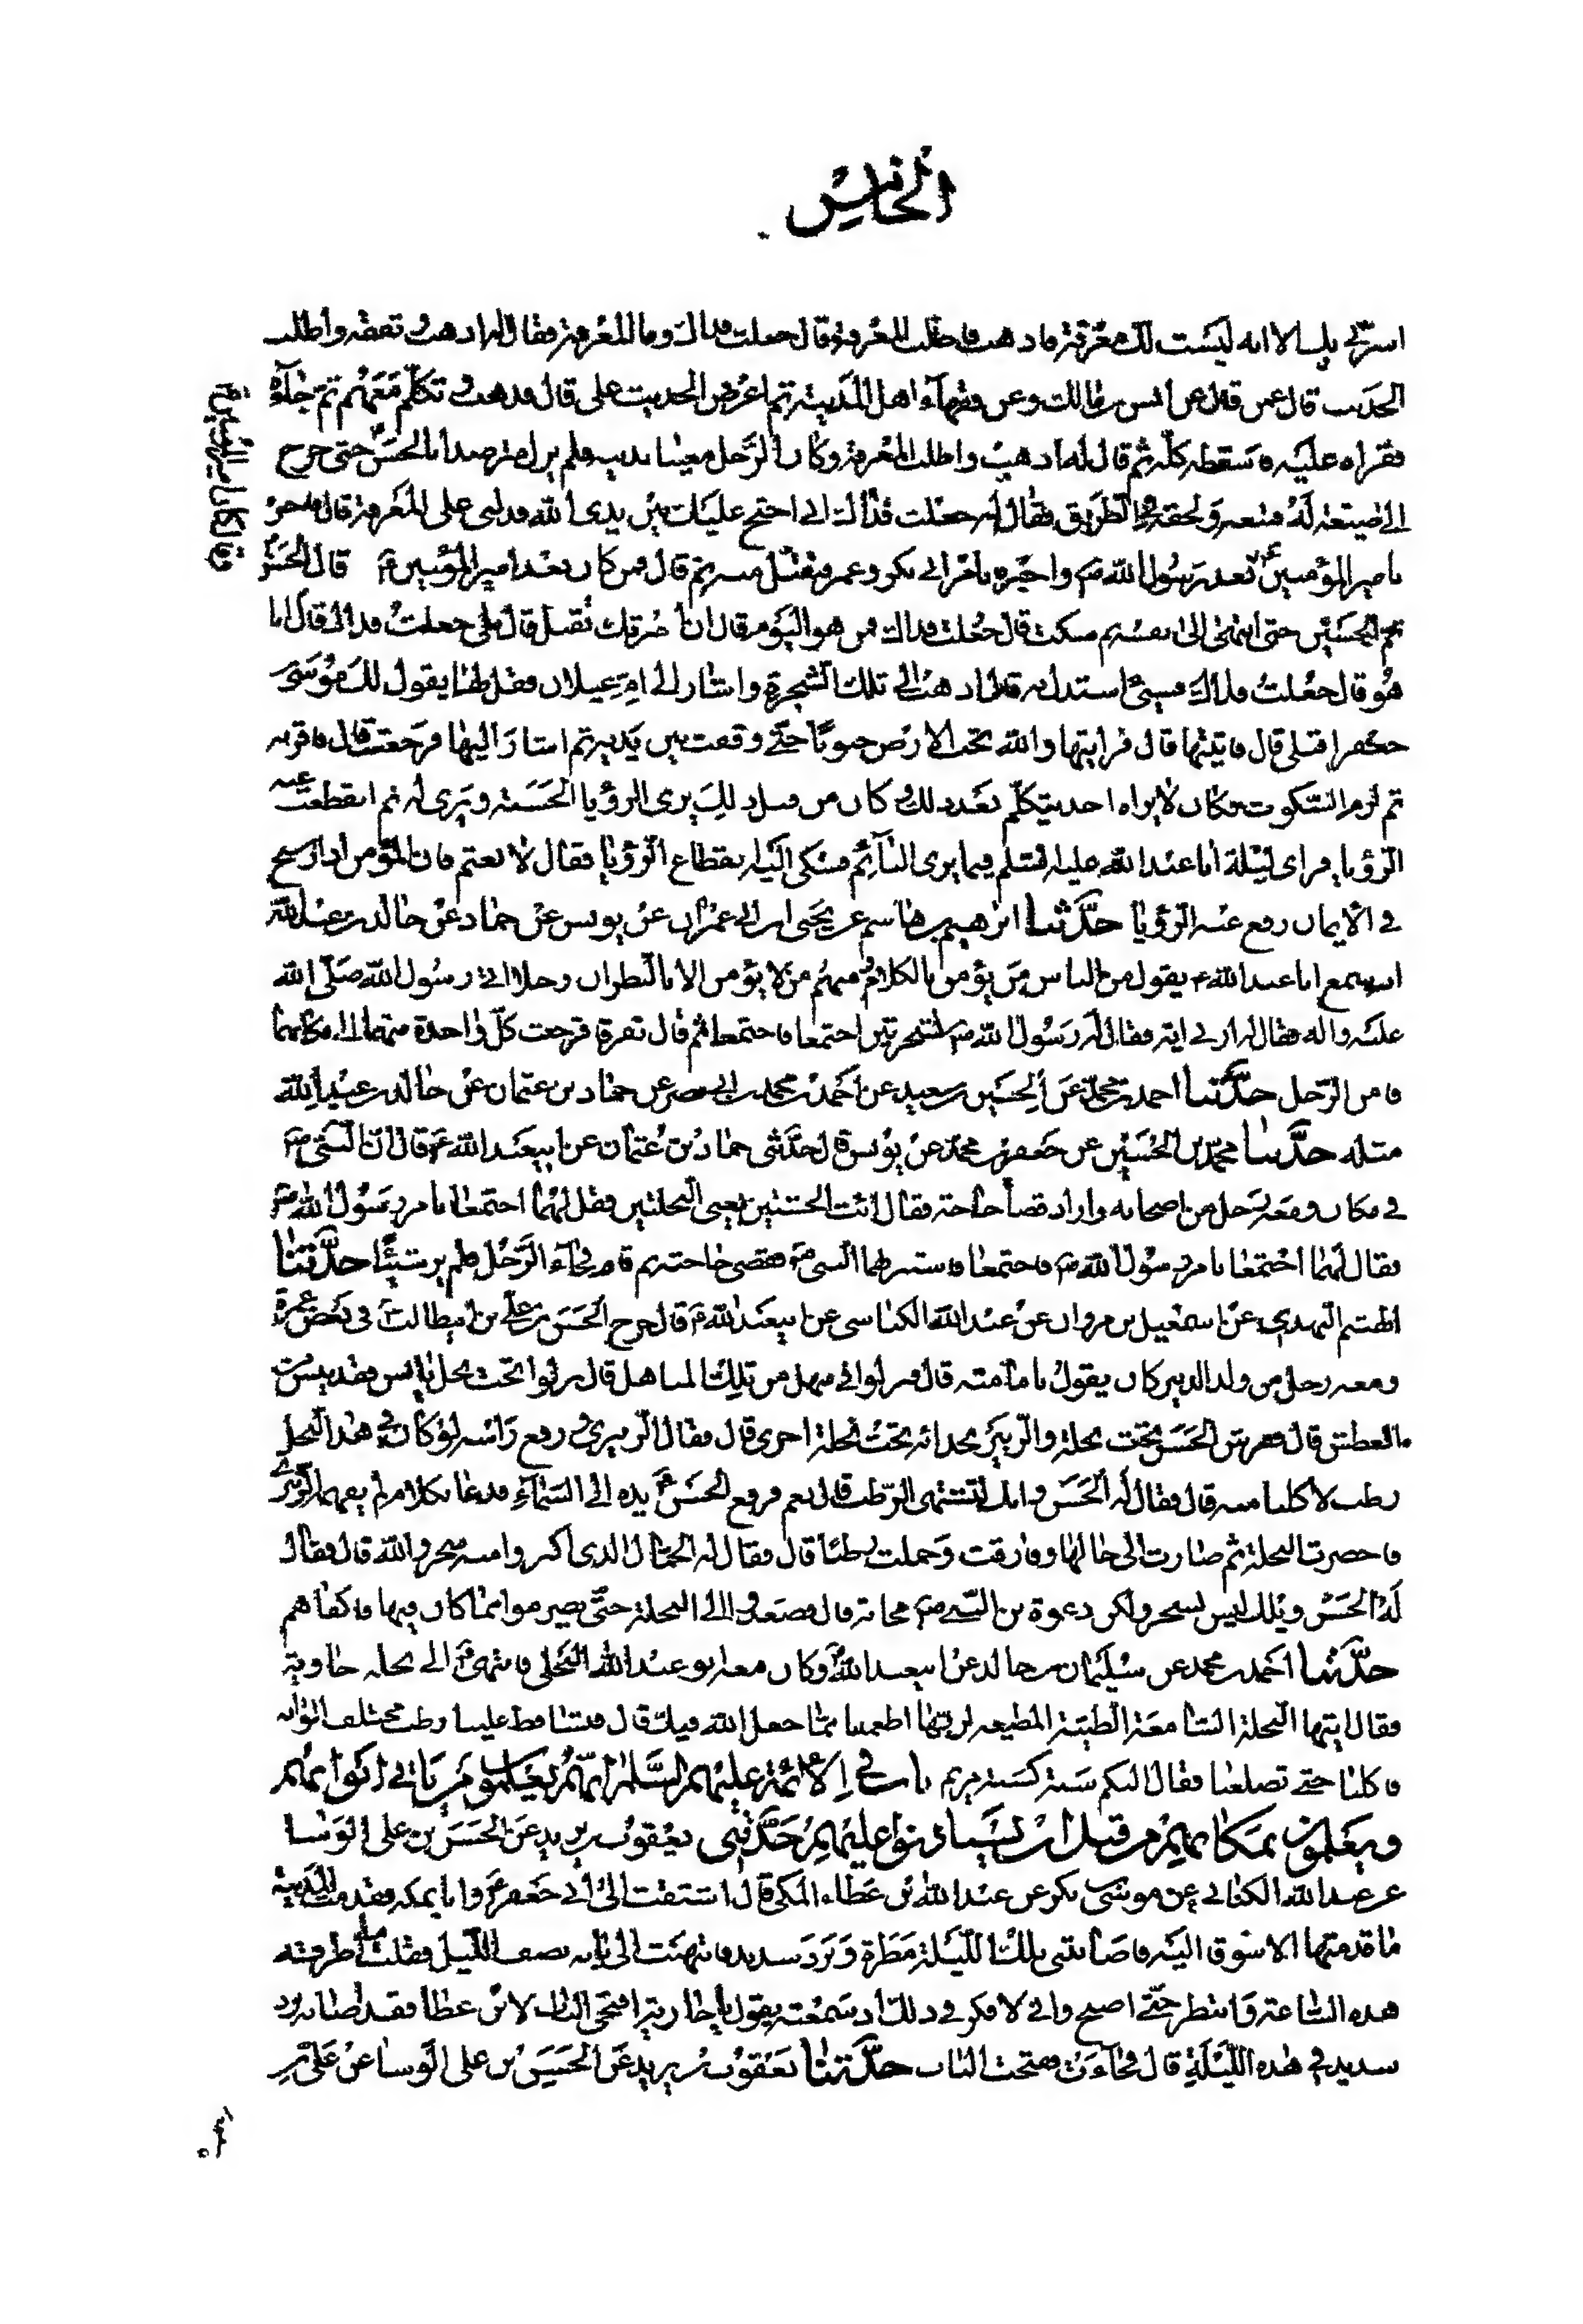 الخامس
اسرّني بك الا انه ليست لك معرفة فاذهب فاطلب المعرفة وقال جعلت فداك وما المعرفة فقال له اذهب وتفقه واطلب
الحديث قال عمن قال عن انس بن مالك وعن فقهاء اهل المدينة ثم اعرض الحديث علي قال فذهب فتكلم معهم ثم جاءه
فقراه عليه فاسقطه كله ثم قال له اذهب واطلب المعرفة وكان الرجل معينا بدينه فلم يزل يترصد ابا الحسن حتى خرج
الى ضيعة له فتبعه ولحقه في الطريق فقال له جعلت فداك اني احتج عليك بين يدي الله فدلني على المعرفة قال فاخبره
بامير المؤمنين بعد رسول الله ص واخبره بامر ابي بكر وعمر فقبل منه ثم قال فمن كان بعد امير المؤمنين قال الحسن
ثم الحسين حتى انتهى الى نفسه ثم سكت قال جعلت فداك فمن هو اليوم قال ان اخبرتك تقبل قال بلى جعلت فداك قال انا
هو قال جعلت فداك فشيء استدل به قال اذهب الى تلك الشجرة واشار الى ام غيلان فقل لها يقول لك موسى بن
جعفر اقبلي قال فاتيتها قال فرايتها والله تخد الارض جبوبا حتى وقفت بين يديه ثم اشار اليها فرجعت قال فاقر به
ثم لزم السكوت فكان لا يراه احد يتكلم بعد ذلك وكان من قبل ذلك يرى الرؤيا الحسنة ويرى له ثم انقطعت عنه
الرؤيا فراى ليلة ابا عبد الله عليه السلم فيما يرى النائم فشكى اليه انقطاع الرؤيا فقال لا تغتم فان المؤمن اذا رسخ
في الايمان رفع عنه الرؤيا حدّثنا ابرهيم بن هاشم عن يحيى بن ابي عمران عن يونس عن حماد عن خالد بن عبد الله
انه سمع ابا عبد الله ع يقول من الناس من يؤمن بالكلام ومنهم من لا يؤمن الا بالنظر ان رجلا اتى رسول الله صلّى الله
عليه واله فقال له ارني اية فقال له رسول الله ص لشجرتين اجتمعا فاجتمعا ثم قال تفرقا فرجعت كل واحدة منهما الى مكانهما
فامن الرجل حدّثنا احمد بن محمد عن الحسين بن سعيد عن احمد بن محمد بن ابي نصر عن حماد بن عثمان عن خالد بن عبد الله
مثله حدّثنا محمد بن الحسين عن جعفر بن محمد عن يونس قال حدثني حماد بن عثمان عن ابيعبد الله ع قال ان النبي ص
في مكان ومعه رجل من اصحابه واراد قضاء حاجته فقال ائت الخشبتين يعني النخلتين فقل لهما اجتمعا بامر رسول الله ص
فقال لهما اجتمعا بامر رسول الله ص فاجتمعا فاستتر بهما النبي ص فقضى حاجته ثم قام فجاء الرجل فلم ير شيئا حدّثنا
الهيثم النهدي عن اسمعيل بن مروان عن عبد الله الكناسي عن ابيعبد الله ع قال خرج الحسن بن علي بن ابيطالب ع في بعض عمره
ومعه رجل من ولد الزبير كان يقول بامامته قال فنزلوا في منهل من تلك المناهل قال نزلوا تحت نخل يابس فقد يبس من
العطش قال ففرش الحسن تحت نخلة والزبيري بحذائه تحت نخلة اخرى قال فقال الزبيري ورفع راسه لو كان في هذا النخل
رطب لاكلنا منه قال فقال له الحسن وانك لتشتهي الرطب قال نعم فرفع الحسن ع يده الى السماء فدعا بكلام لم يفهمه الزبيري
فاخضرت النخلة ثم صارت الى حالها وفارقت وحملت رطبا قال فقال له الجمال الذي اكتروا منه سحر والله قال فقال
له الحسن ويلك ليس بسحر ولكن دعوة بن النبي ص مجابة قال فصعدوا الى النخلة حتى يصرموا مما كان فيها فاكفاهم
حدّثنا احمد بن محمد عن سليمان بن خالد عن ابيعبد الله ع وكان معه ابو عبد الله البلخي فانتهى الى نخلة خاوية
فقال ايتها النخلة السامعة الطيبة المطيعة لربها اطعمينا مما جعل الله فيك قال فتساقط علينا رطب مختلف الوانه
فاكلنا حتى تضلعنا فقال فيكم سنة كسنة مريم باب في الائمة عليهم السلام انهم يعلمون من ياتي ابوابهم
ويعلمون بمكانهم من قبل ان يستاذنوا عليهم حدّثني يعقوب بن يزيد عن الحسن بن علي الوشا
عن عبد الله الكناني عن موسى بن بكر عن عبد الله بن عطاء المكي قال اشتقت الى ابي جعفر ع وانا بمكة فقدمت المدينة
ما قدمتها الا شوقا اليه فاصابتني تلك الليلة مطر وبرد شديد فانتهيت الى بابه نصف الليل فقلت اطرقه
هذه الساعة او انتظر حتى اصبح واني لافكر في ذلك اذ سمعته يقول يا جارية افتحي الباب لابن عطا فقد اصابه برد
شديد في هذه الليلة قال فجاءت ففتحت الباب حدّثنا يعقوب بن يزيد عن الحسن بن علي الوشا عن علي بن